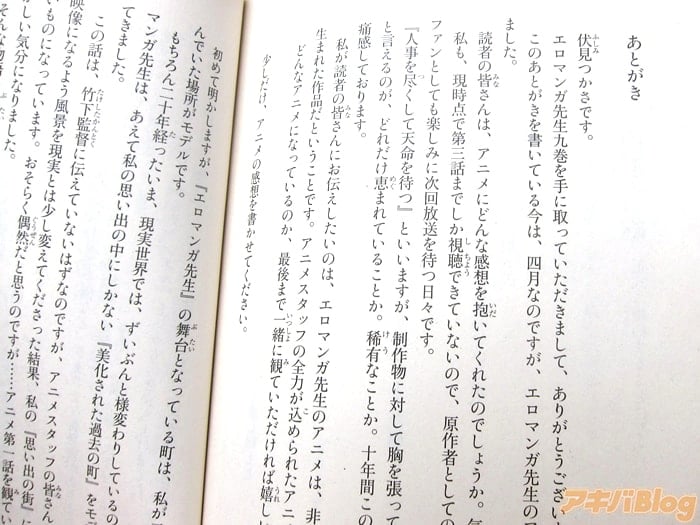 あとがき
伏見つかさです。
エロマンガ先生九巻を手に取っていただきまして、ありがとうござい
このあとがきを書いている今は、四月なのですが、エロマンガ先生の
ました。
読者の皆さんは、アニメにどんな感想を抱いてくれたのでしょうか。気
私も、現時点で第三話までしか視聴できていないので、原作者としての
ファンとしても楽しみに次回放送を待つ日々です。
『人事を尽くして天命を待つ』といいますが、制作物に対して胸を張って
と言えるのが、どれだけ恵まれていることか。稀有なことか。十年間この
痛感しております。
私が読者の皆さんにお伝えしたいのは、エロマンガ先生のアニメは、非
生まれた作品だということです。アニメスタッフの全力が込められたアニ
どんなアニメになっているのか、最後まで一緒に観ていただければ嬉し
少しだけ、アニメの感想を書かせてください。
初めて明かしますが、『エロマンガ先生』の舞台となっている町は、私が
んでいた場所がモデルです。
もちろん二十年経ったいま、現実世界では、ずいぶんと様変わりしているの
マンガ先生は、あえて私の思い出の中にしかない『美化された過去の町』をモ
てきました。
この話は、竹下監督に伝えていないはずなのですが、アニメスタッフの皆さん
映像になるよう風景を現実とは少し変えてくださった結果、私の『思い出の街』に
いものになっています。おそらく偶然だと思うのですが……アニメ第一話を観てい
しい気分になりました。
アキバBlog